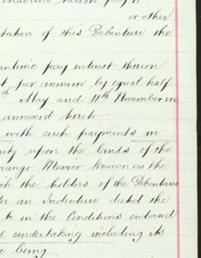 or other
tation of this Debenture the
antime pay interest thereon
per annum by equal half
th May and 11th November in
annexed hereto
with such payments in
upon the lands of the
rango Mexico known as the
the holders of the Debentures
an Indenture dated the
to in the Conditions endorsed
undertaking including its
being